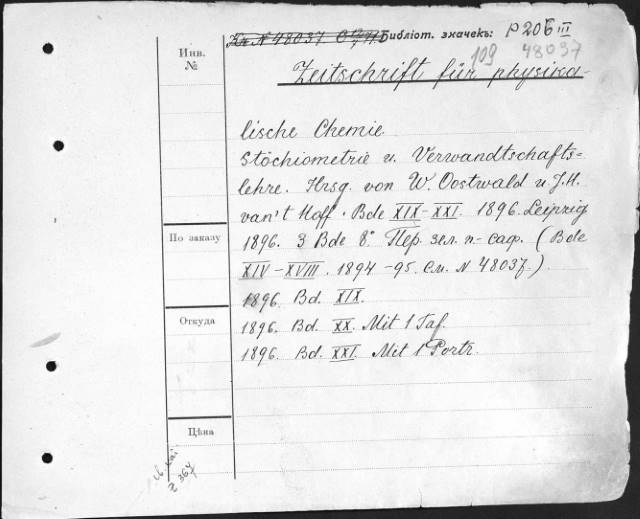 Библіот. значекъ: P 206 III
109 48037
Инв.
№
Zeitschrift für physika-
lische Chemie
Stöchiometrie u. Verwandtschafts-
lehre. Hrsg. von W. Oostwald u. J.H.
van't Hoff. Bde XIX-XXI. 1896. Leipzig
По заказу
1896. 3 Bde 8°. Пер. зел. п-саф. (Bde
XIV-XVIII. 1894-95. См. N 48037.)
1896. Bd. XIX.
Откуда
1896. Bd. XX. Mit 1 Taf.
1896. Bd. XXI. Mit 1 Portr.
Цѣна
z 364